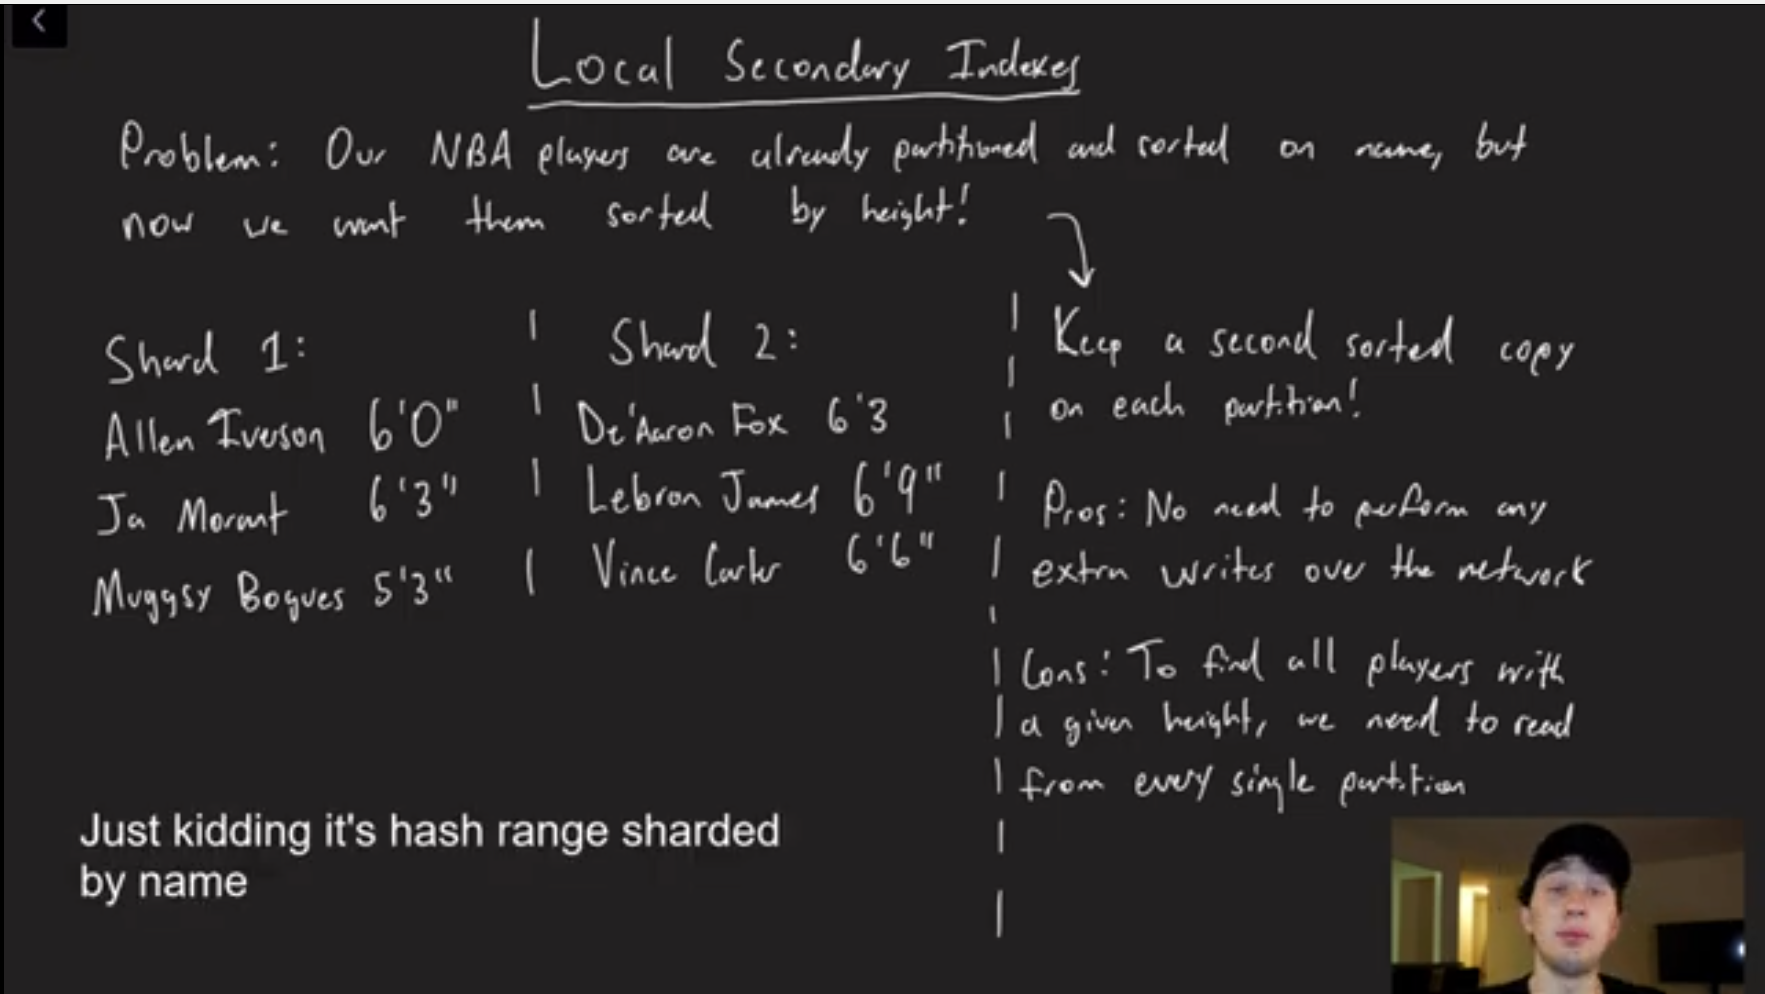 Local Secondary Indexes
Problem: Our NBA players are already partitioned and sorted on name, but
now we want them sorted by height!
Shard 1:
Allen Iverson 6'0"
Ja Morant 6'3"
Muggsy Bogues 5'3"
Shard 2:
De'Aaron Fox 6'3
Lebron James 6'9"
Vince Carter 6'6"
Keep a second sorted copy
on each partition!
Pros: No need to perform any
extra writes over the network
Cons: To find all players with
a given height, we need to read
from every single partition
Just kidding it's hash range sharded
by name